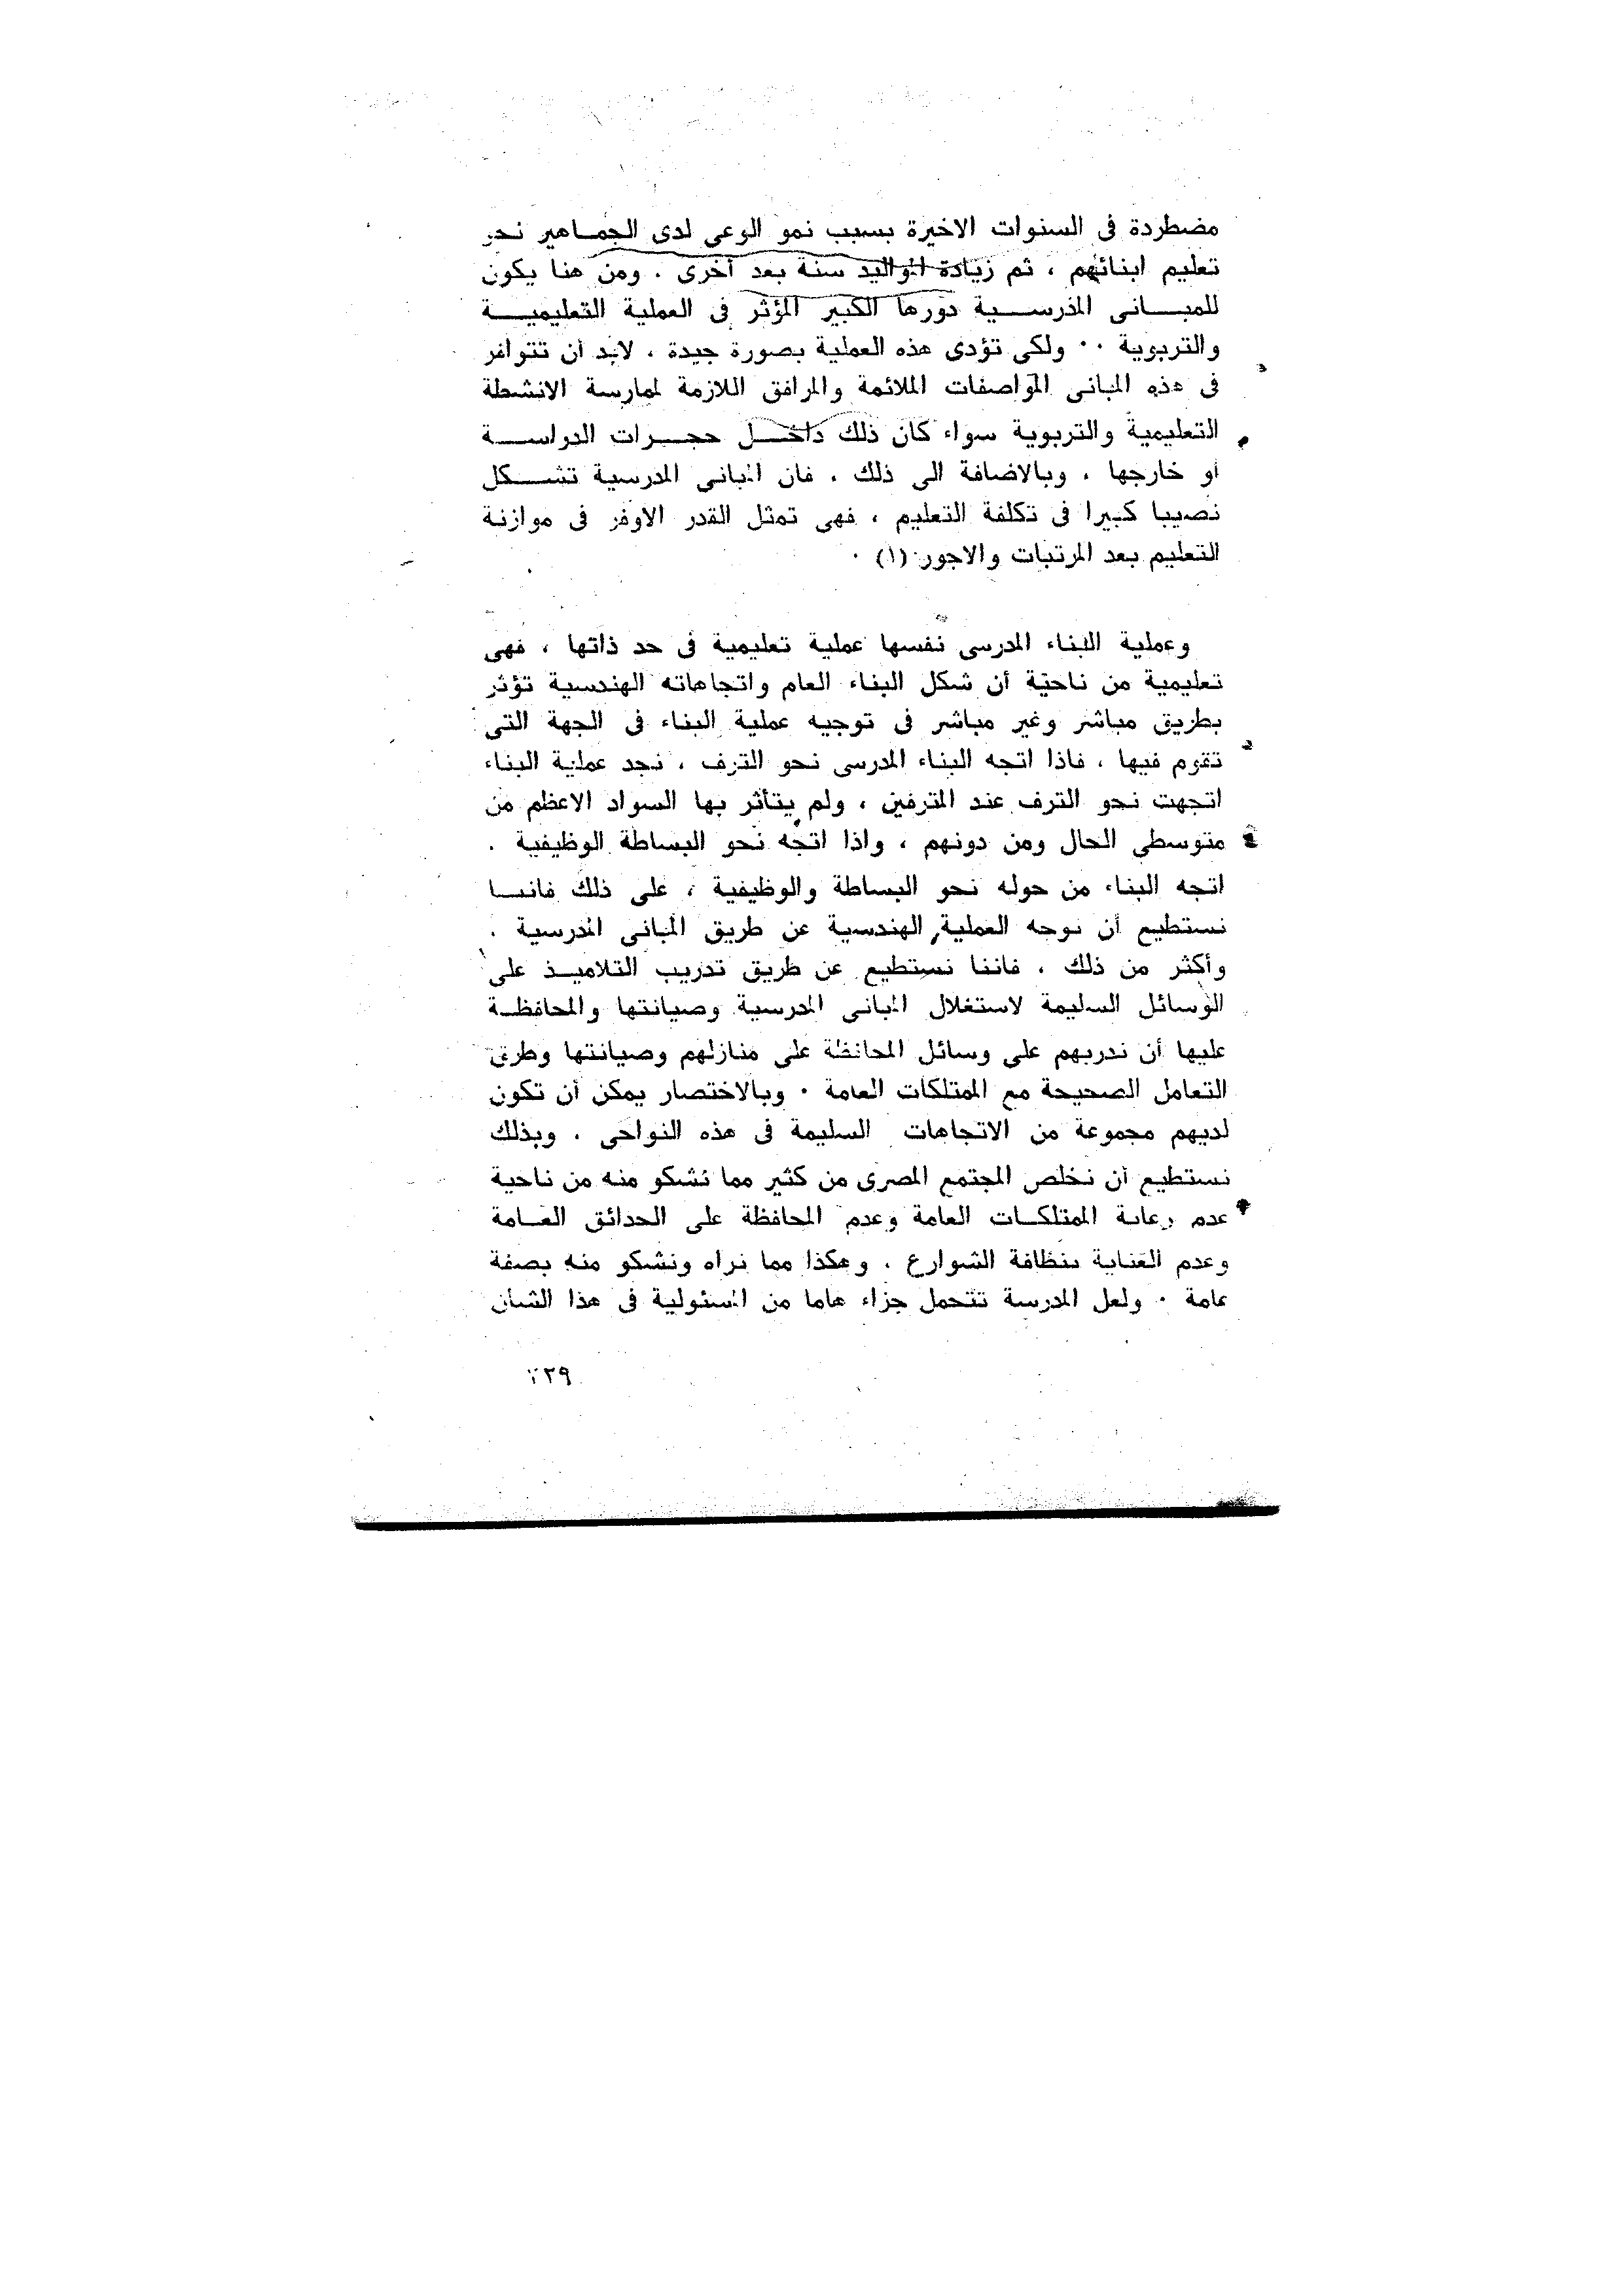 مضطردة فى السنوات الاخيرة بسبب نمو الوعى لدى الجمـاهير نحو
تعليم ابنائهم ، ثم زيادة المواليد سنة بعد أخرى . ومن هنا يكون
للمبـــانى المدرســـية دورها الكبير المؤثر فى العملية التعليميـــة
والتربوية ٠٠ ولكى تؤدى هذه العملية بصورة جيدة ، لابد أن تتوافر
فى هذه المبانى المواصفات الملائمة والمرافق اللازمة لممارسة الانشطة
التعليمية والتربوية سواء كان ذلك داخـــل حجـــرات الدراســـة
أو خارجها ، وبالاضافة الى ذلك ، فان المبانى المدرسية تشـــكل
نصيبا كبيرا فى تكلفة التعليم ، فهى تمثل القدر الاوفر فى موازنة
التعليم بعد المرتبات والاجور (١) ٠
وعملية البناء المدرسى نفسها عملية تعليمية فى حد ذاتها ، فهى
تعليمية من ناحية أن شكل البناء العام واتجاهاته الهندسية تؤثر
بطريق مباشر وغير مباشر فى توجيه عملية البناء فى الجهة التى
تقوم فيها ، فاذا اتجه البناء المدرسى نحو الترف ، نجد عملية البناء
اتجهت نحو الترف عند المترفين ، ولم يتأثر بها السواد الاعظم من
متوسطى الحال ومن دونهم ، واذا اتجه نحو البساطة الوظيفية .
اتجه البناء من حوله نحو البساطة والوظيفية ، على ذلك فاننـــا
نستطيع أن نوجه العملية الهندسية عن طريق المبانى المدرسية .
وأكثر من ذلك ، فاننا نستطيع عن طريق تدريب التلاميـــذ على
الوسائل السليمة لاستغلال المبانى المدرسية وصيانتها والمحافظـة
عليها أن ندربهم على وسائل المحافظة على منازلهم وصيانتها وطرق
التعامل الصحيحة مع الممتلكات العامة ٠ وبالاختصار يمكن أن تكون
لديهم مجموعة من الاتجاهات السليمة فى هذه النواحى . وبذلك
نستطيع أن نخلص المجتمع المصرى من كثير مما نشكو منه من ناحية
عدم رعاية الممتلكـــات العامة وعدم المحافظة على الحدائق العـــامة
وعدم العناية بنظافة الشوارع ، وهكذا مما نراه ونشكو منه بصفة
عامة ٠ ولعل المدرسة تتحمل جزاء هاما من المسئولية فى هذا الشأن